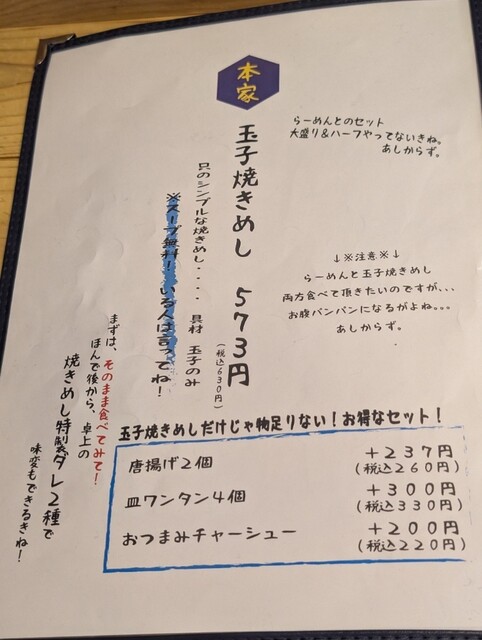 本家
らーめんとのセット
大盛り&ハーフやってないきね。
あしからず。
玉子焼きめし 573円
(税込630円)
只のシンプルな焼きめし・・・・ 具材 玉子のみ
※スープ無料!いる人は言ってね!
↓※注意※↓
らーめんと玉子焼きめし
両方食べて頂きたいのですが、、、
お腹パンパンになるがよね。。。
あしからず。
まずは、そのまま食べてみて!
ほんで後から、卓上の
焼きめし特製タレ2種で
味変もできるきね!
玉子焼きめしだけじゃ物足りない!お得なセット!
唐揚げ2個 +237円
(税込260円)
皿ワンタン4個 +300円
(税込330円)
おつまみチャーシュー +200円
(税込220円)